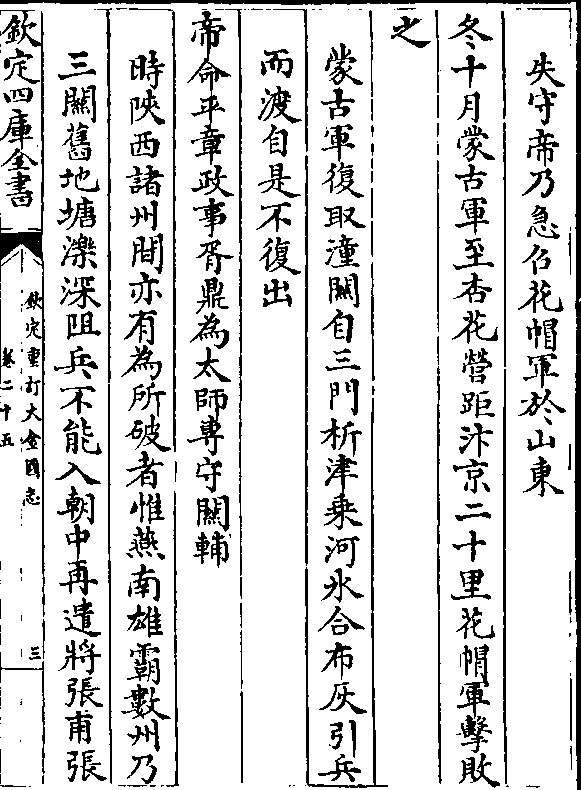 失守帝乃急召花帽軍於山東
冬十月蒙古軍至杏花營距汴京二十里花帽軍擊敗
之
蒙古軍復取潼關自三門析津乗河氷合布灰引兵
而渡自是不復出
帝命平章政事胥鼎為太師專守關輔
時陜西諸州間亦有為所破者惟燕南雄霸數州乃
三關舊地塘濼深阻兵不能入朝中再遣將張甫張
欽定四庫全書
欽定重訂大金國志
卷二十五
三